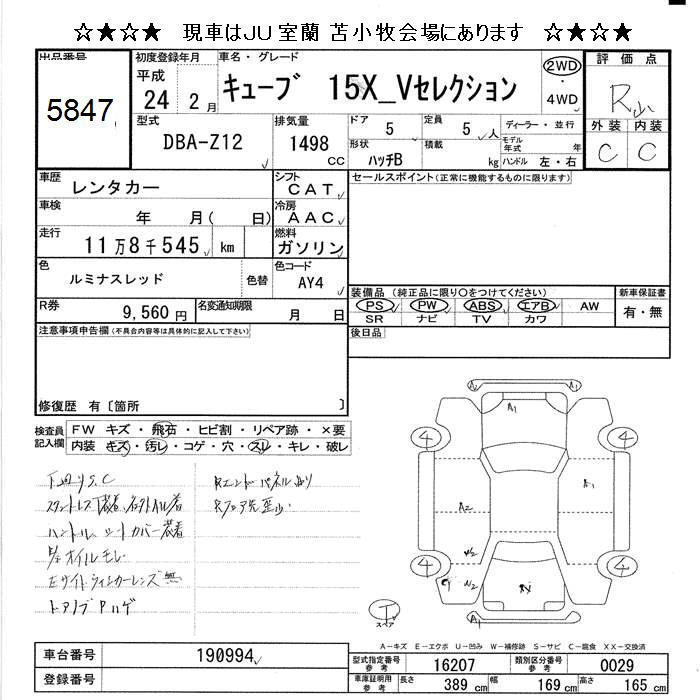 ☆★☆★ 現車はJU室蘭 苫小牧会場にあります ☆★☆★
出品番号 5847
初度登録年月 平成 24年 2月
車名・グレード キューブ 15X_Vセレクション
2WD・4WD
評価点 R
外装 C 内装 C
型式 DBA-Z12
排気量 1498 CC
ドア 5 定員 5 人
形状 ハッチB 積載 kg
ディーラー・並行
モデル年式 年
ハンドル 左・右
車歴 レンタカー
シフト CAT
セールスポイント(正常に機能するものに限ります)
車検 年 月( 日)
冷房 AAC
走行 11万8千545 km
燃料 ガソリン
色 ルミナスレッド 色替
色コード AY4
装備品(純正品に限り○をつけてください) 新車保証書
PS PW ABS エアB AW 有・無
SR ナビ TV カワ
R券 9,560円 名変通知期限 月 日
注意事項申告欄(不具合内容等は具体的に記入して下さい)
後日品
修復歴 有〔箇所 〕
検査員記入欄 FW キズ・飛石・ヒビ割・リペア跡・×要
内装 キズ・汚レ・コゲ・穴・スレ・キレ・破レ
下回りS.C
ハンドル、シートカバー装着
オイルモレ
ドアノブPハゲ
Rエンドパネル凹
A1
A1
4
4
A1
A2
W2
4
4
RX
T
スペア
A-キズ E-エクボ U-凹み W-補修跡 S-サビ C-腐食 XX-交換済
車台番号 190994
登録番号
型式指定番号 参考 16207 類別区分番号 参考 0029
車庫証明用 参考 長さ 389 cm 幅 169 cm 高さ 165 cm